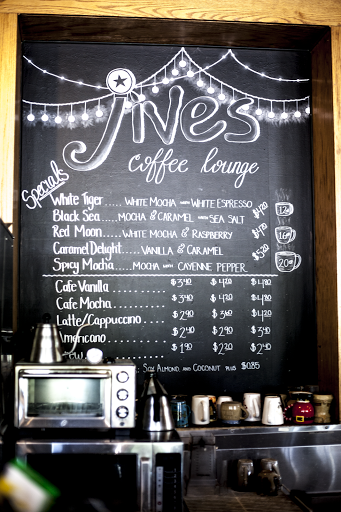 Jives
coffee lounge
Specials
White Tiger..... White Mocha with White Espresso
Black Sea..... Mocha & Caramel with Sea Salt
Red Moon..... White Mocha & Raspberry
Caramel Delight..... Vanilla & Caramel
Spicy Mocha..... Mocha with Cayenne Pepper
$4.20 12oz
$4.70 16oz
$5.20 20oz
Cafe Vanilla ....... $3.40 $4.20 $4.80
Cafe Mocha ....... $3.40 $4.20 $4.80
Latte/Cappuccino ....... $2.90 $3.60 $4.20
Americano ....... $2.40 $2.90 $3.40
$1.90 $2.20 $2.40
Soy, Almond, and Coconut plus $0.85